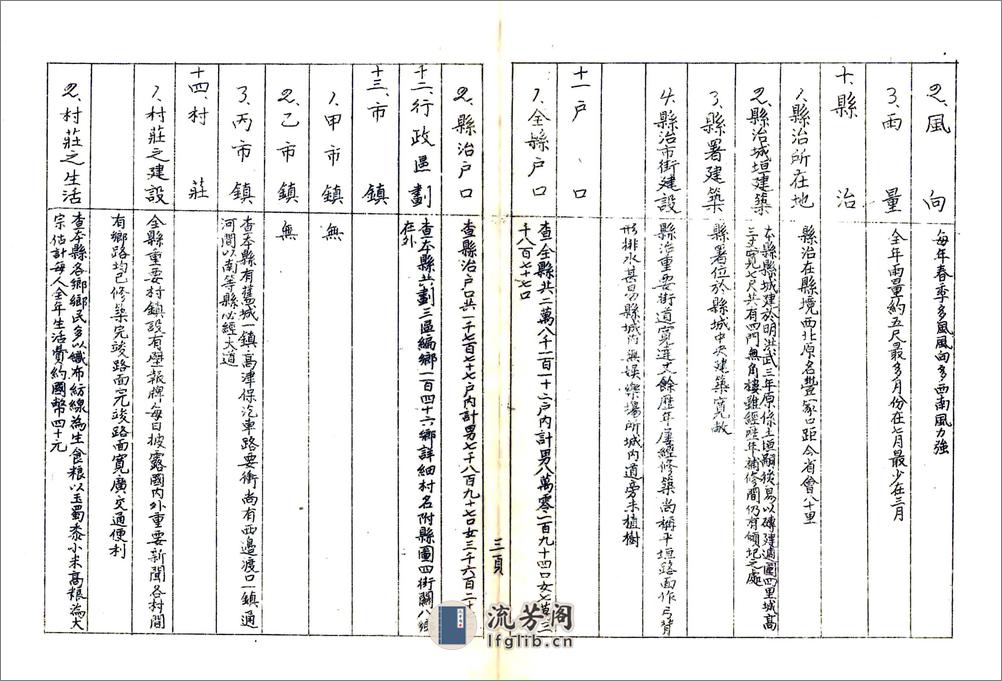 2.風向
每年春季多風風向多西南風力強
3.雨量
全年雨量約五尺最多月份在七月最少在三月
十.縣治
1.縣治所在地
縣治在縣境西北原名豐家口距今省會八十里
2.縣治城垣建築
本縣縣城建於明洪武三年原係土垣嗣後易以磚建週圍四里城高
三丈寬七尺共有四門無角樓雖經歷年補修間仍有傾圯之處
3.縣署建築
縣署位於縣城中央建築寬敞
4.縣治市街建設
縣治重要街道寬達丈餘歷年屢經修築尚稱平垣路面作弓背
形排水甚易縣城內無娛樂場所城內道旁未植樹
十一戶口
1.全縣戶口
查全縣共二萬八千一百一十二戶內計男八萬零二百九十四口女七萬三
千八百七十七口
2.縣治戶口
查縣治戶口共一千七百七十七戶內計男七千八百九十七口女三千六百二十
十二.行政區劃
查本縣共劃三區編鄉一百四十六鄉詳細村名附縣圖四街關八鄉
在外
十三.市鎮
1.甲市鎮
無
2.乙市鎮
無
3.丙市鎮
查本縣有舊城一鎮高津保汽車路要衝尚有西邊渡口一鎮適
河間以南等縣必經大道
十四.村莊
1.村莊之建設
全縣重要村鎮設有壁報牌每日披露國內外重要新聞各村間
有鄉路均已修築完竣路面完竣路面寬廣交通便利
2.村莊之生活
查本縣各鄉鄉民多以織布紡線為生食糧以玉蜀黍小米高粮為大
宗估計每人全年生活費約國幣四十元
三頁
流芳阁
lfglib.cn